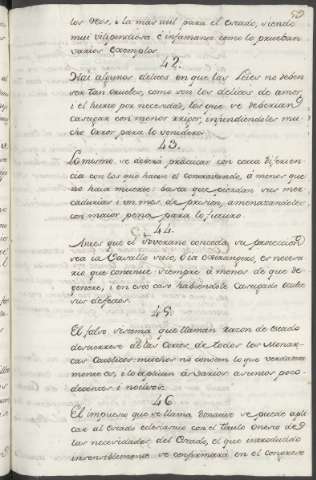 los Vicios, o la más util para el estado, siendo
mui viligendiosa è infamanes como lo prueban
varios exemplos.
42.
Hai algunos delitos en que las Leies no deben
ser tan crueles, como son los delitos de amor,
i el hurto por necesidad, los que se deberian
castigar con menos rigor, infundiendoles mu-
cho terror para lo venidero.
43.
Lo mismo se deverá practicar con corta diferen-
cia con los que hacen el contravando, à menos que
no haia muerte: basta que pierdan sus mer-
caderias i un mes de prision, amenazandoles
con maior pena para lo futuro.
44.
Antes que el soverano conceda su proteccion
sea la Cavallo viejo, ô la estrangero, es necesa-
rio que continue siempre à menos de que de-
genere, i en este caso habiendole castigado
sus defectos.
45.
El falso sistema que llaman razon de estado
destierrese de las Cortes, de todos los Monar-
cas Catolicos: muchos no conocen lo que verdadera-
mente es, i lo aplican à varios asuntos poco
decentes i nocivos.
46
El impuesto que se llama Donativo se puede apli-
car al estado eclesiastico con el titulo oneroso de
las necesidades del Estado, el que introducido
insensiblemente se confirmará en el congreso